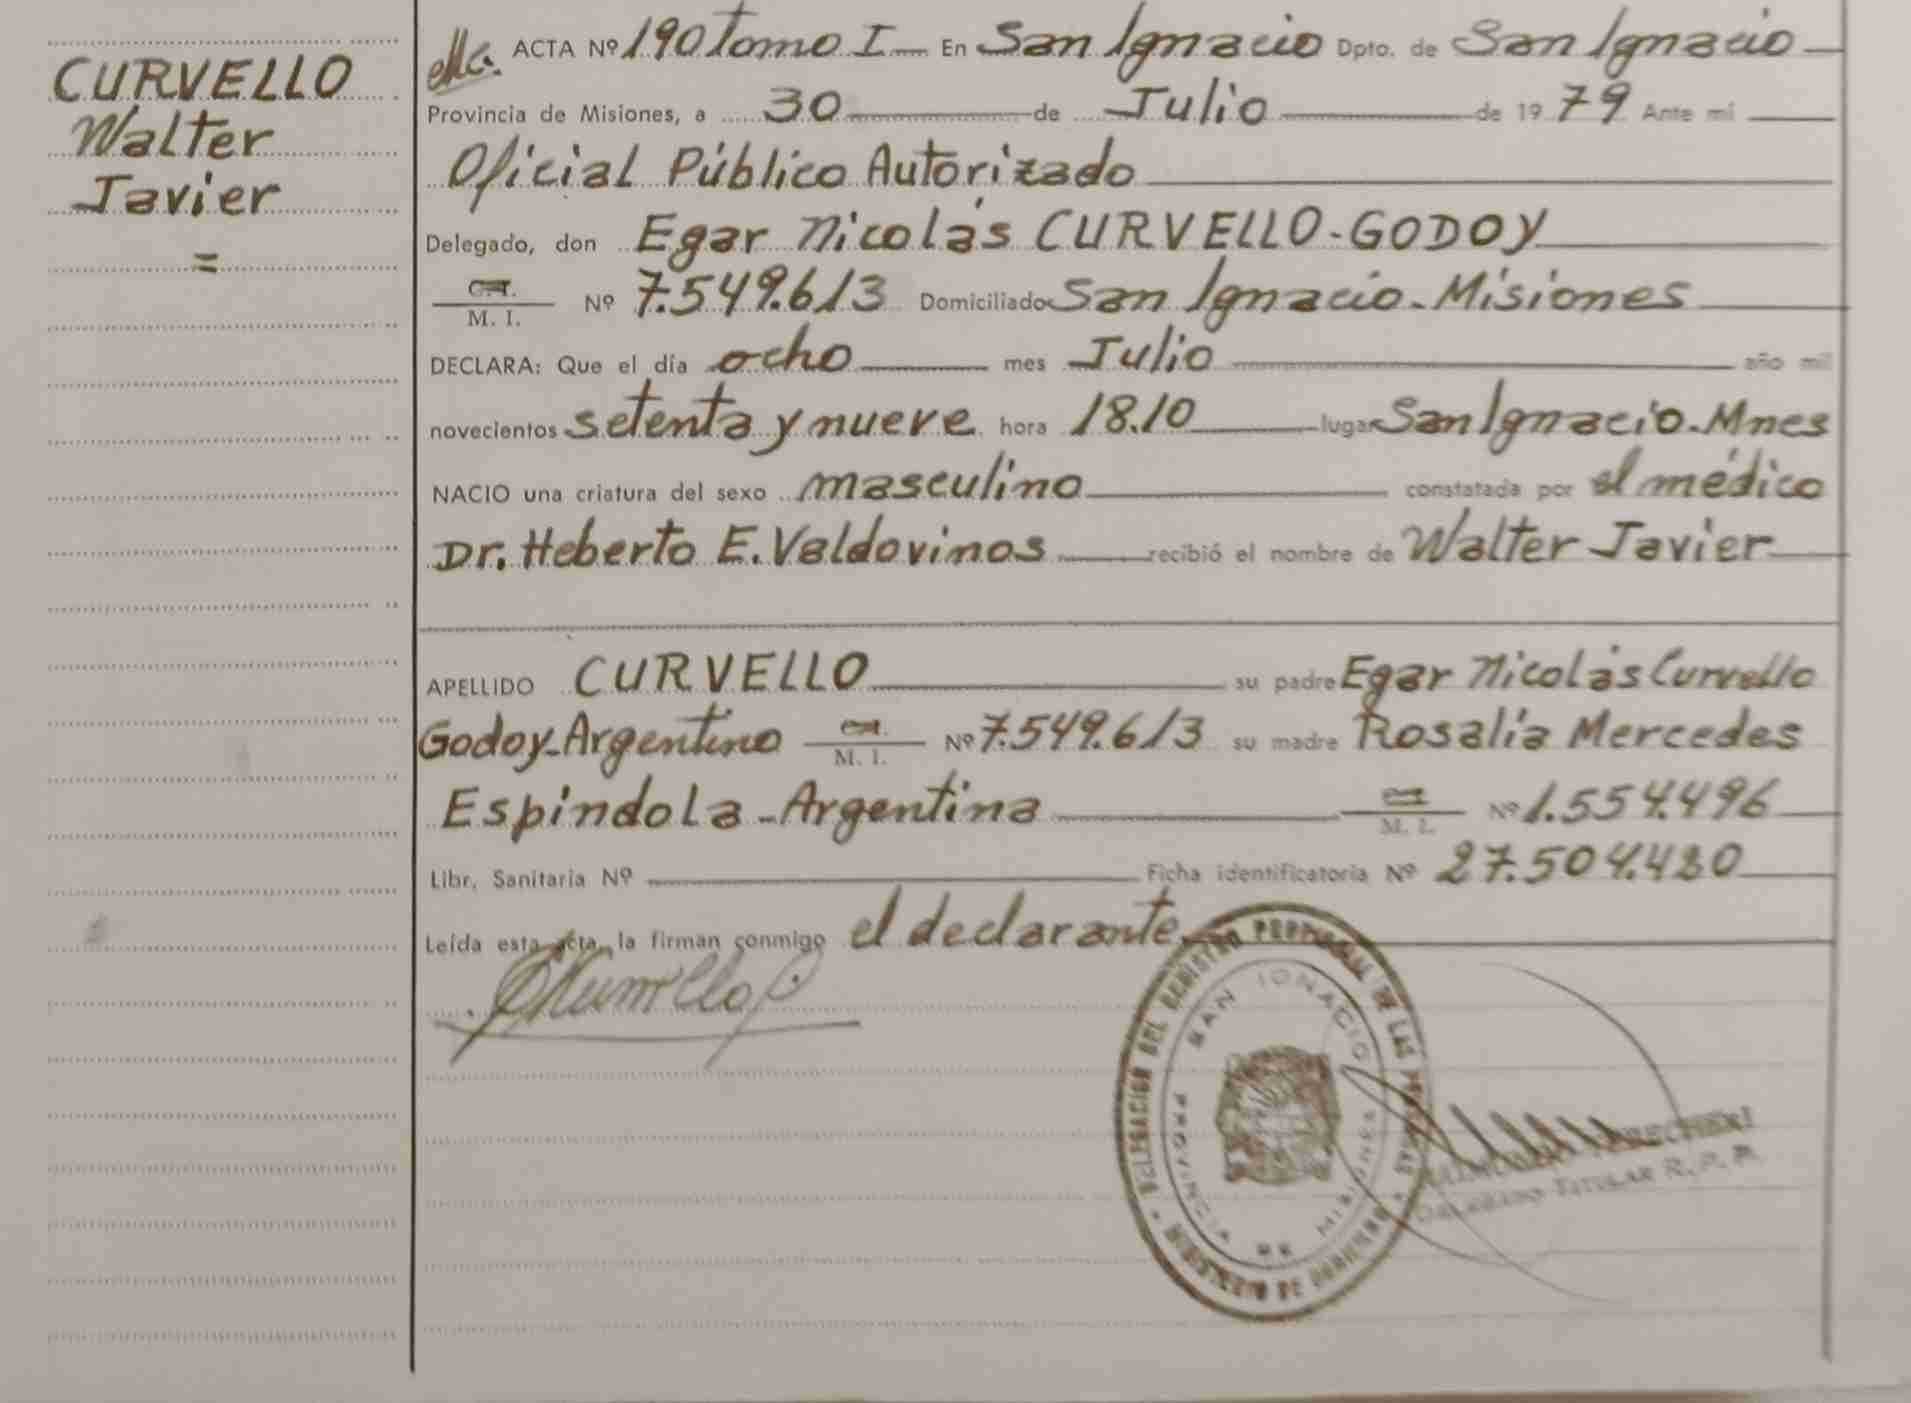 CURVELLO
Walter
Javier
=
ACTA Nº 190 Tomo I En San Ignacio Dpto. de San Ignacio
Provincia de Misiones, a 30 de Julio de 1979 Ante mí
Oficial Público Autorizado
Delegado, don Egar Nicolás CURVELLO-GODOY
C.I.
M. I. Nº 7.549.613 Domiciliado San Ignacio-Misiones
DECLARA: Que el día ocho mes Julio año mil
novecientos setenta y nueve hora 18.10 lugar San Ignacio-Mnes
NACIO una criatura del sexo masculino constatada por el médico
Dr. Heberto E. Valdovinos recibió el nombre de Walter Javier
APELLIDO CURVELLO su padre Egar Nicolás Curvello
Godoy-Argentino C.I.
M. I. Nº 7.549.613 su madre Rosalía Mercedes
Espíndola-Argentina C.I.
M. I. Nº 1.554.496
Libr. Sanitaria Nº Ficha identificatoria Nº 27.504.430
Leída esta acta, la firman conmigo el declarante
DELEGACION DEL REGISTRO PROVINCIAL DE LAS PERSONAS
SAN IGNACIO
PROVINCIA DE MISIONES
DELEGADO TITULAR R. P. P.